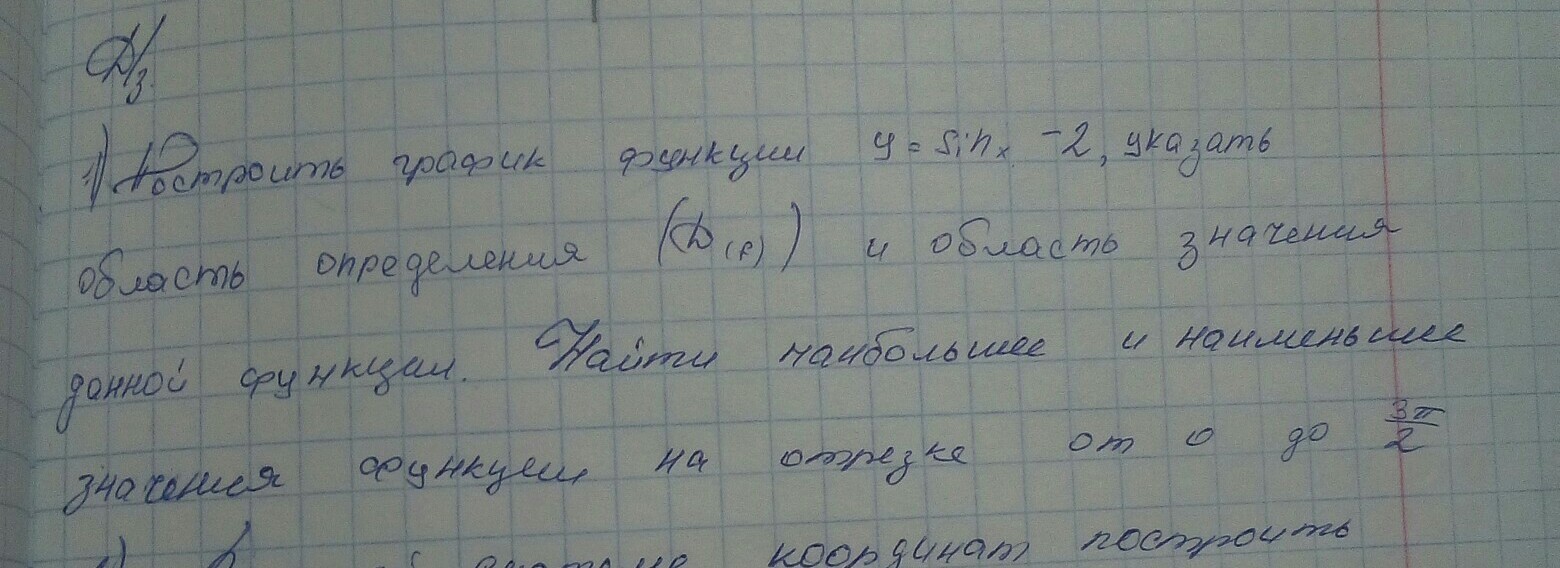 Д/з.
1) Построить график функции y = sin x - 2, указать
область определения (D(f)) и область значения
данной функции. Найти наибольшее и наименьшее
значения функции на отрезке от 0 до 3π/2
координат построить